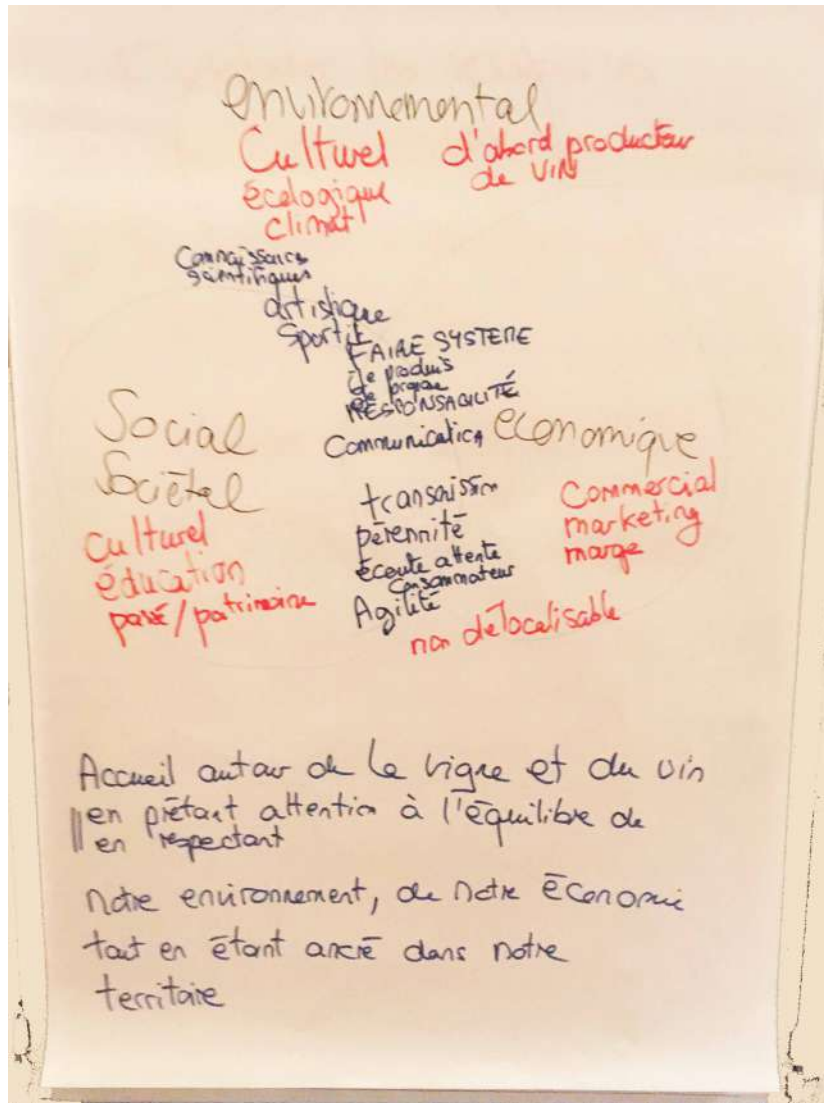 environnemental
Culturel d'abord producteur
de VIN
écologique
climat
Connaissances
scientifiques
artistique
Sportif
FAIRE SYSTEME
de produits
RESPONSABILITÉ
Communication
Social
Sociétal
économique
culturel
éducation
passé/patrimoine
transmission
pérennité
écoute attente
consommateur
Agilité
Commercial
marketing
marge
non délocalisable
Accueil autour de la vigne et du vin
en prêtant attention à l'équilibre de
en respectant
notre environnement, de notre économie
tout en étant ancré dans notre
territoire